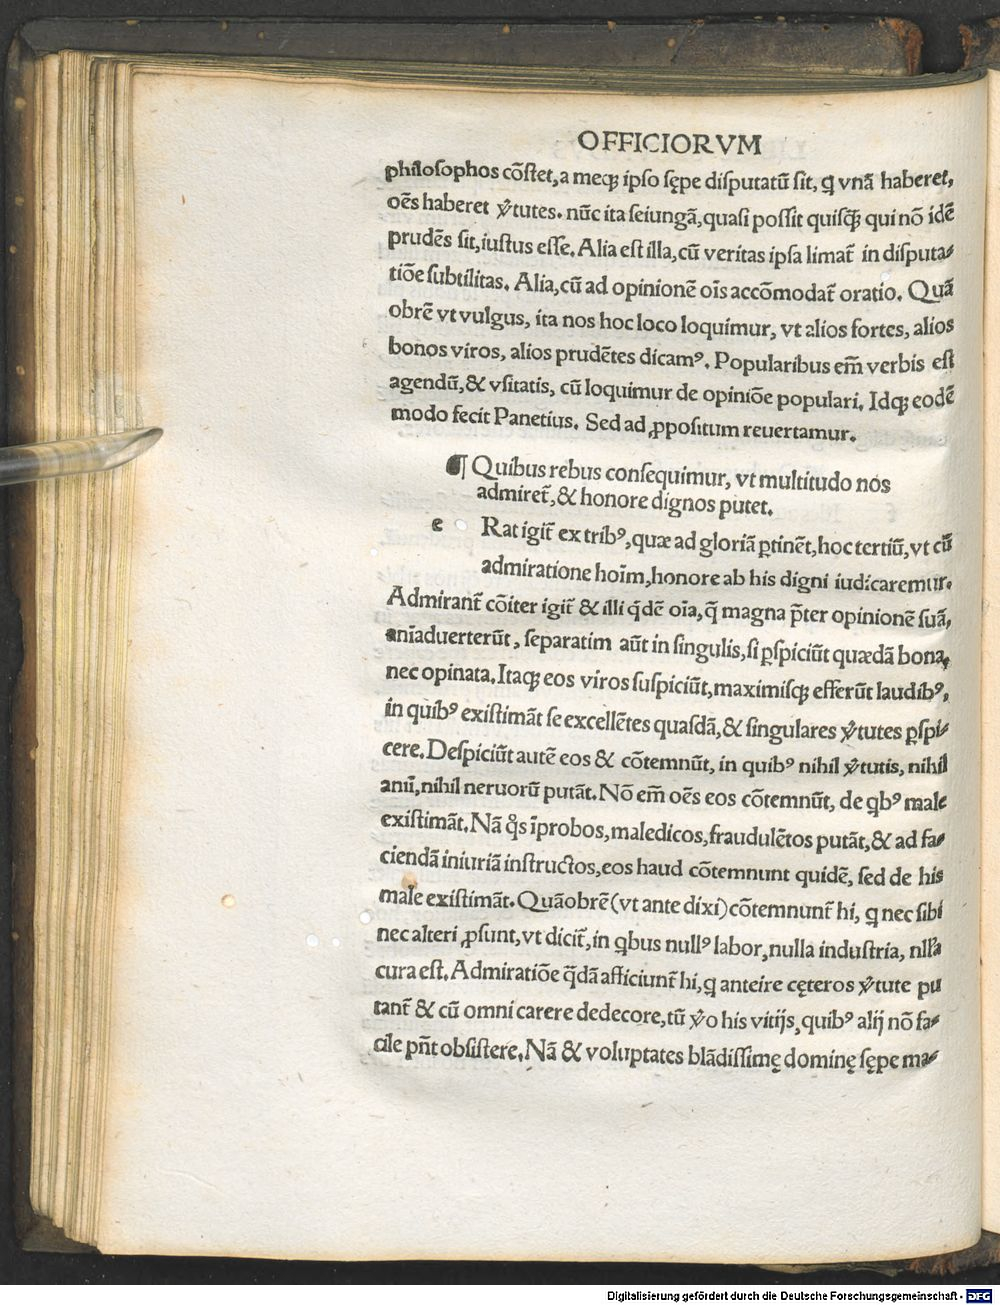 OFFICIORVM
philosophos cōstet, a meqꝫ ipso sępe disputatū sit, ꝗ vnā haberet,
oēs haberet v̓tutes. nūc ita seiungā, quasi possit quisqꝫ qui nō idē
prudēs sit, iustus esse. Alia est illa, cū veritas ipsa limat᷑ in disputa⸗
tiōe subtilitas. Alia, cū ad opinionē oīs accōmodat᷑ oratio. Quā
obrē vt vulgus, ita nos hoc loco loquimur, vt alios fortes, alios
bonos viros, alios prudētes dicamꝰ. Popularibus em̄ verbis est
agendū, & vsitatis, cū loquimur de opiniōe populari. Idqꝫ eodē
modo fecit Panetius. Sed ad ꝓpositum reuertamur.
¶ Quibus rebus consequimur, vt multitudo nos
admiret᷑, & honore dignos putet.
e Rat igit᷑ ex tribꝰ, quæ ad gloriā ꝑtinēt, hoc tertiū, vt cū
admiratione hoīm, honore ab his digni iudicaremur.
Admirant᷑ cōiter igit᷑ & illi q̇dē oīa, q̄ magna p̄ter opinionē suā,
anīaduerterūt, separatim aūt in singulis, si ꝑspiciūt quædā bona,
nec opinata. Itaqꝫ eos viros suspiciūt, maximisqꝫ efferūt laudibꝰ,
in quibꝰ existimāt se excellētes quasdā, & singulares v̓tutes ꝑspi⸗
cere. Despiciūt autē eos & cōtemnūt, in quibꝰ nihil v̓tutis, nihil
anīi, nihil neruorū putāt. Nō em̄ oēs eos cōtemnūt, de ꝗbꝰ male
existimāt. Nā q̊s īprobos, maledicos, fraudulētos putāt, & ad fa⸗
ciendā iniuriā instructos, eos haud cōtemnunt quidē, sed de his
male existimāt. Quāobrē (vt ante dixi) cōtemnunt᷑ hi, ꝗ nec sibi
nec alteri ꝓsunt, vt dicit᷑, in ꝗbus nullꝰ labor, nulla industria, nll̓a
cura est. Admiratiōe q̄dā afficiunt᷑ hi, ꝗ anteire cęteros v̓tute pu
tant᷑ & cū omni carere dedecore, tū v̓o his vitijs, quibꝰ alij nō fa⸗
cile pn̄t obsistere. Nā & voluptates blādissimę dominę sępe ma⸗
Digitalisierung gefördert durch die Deutsche Forschungsgemeinschaft - DFG